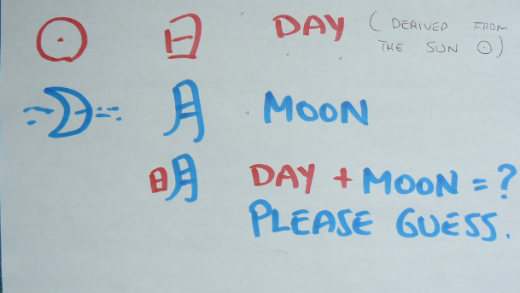 日 DAY (DERIVED FROM THE SUN ⊙)
月 MOON
明 DAY + MOON = ?
PLEASE GUESS.